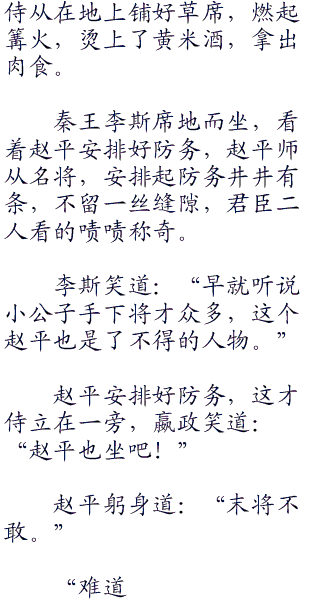 侍从在地上铺好草席，燃起
篝火，烫上了黄米酒，拿出
肉食。
秦王李斯席地而坐，看
着赵平安排好防务，赵平师
从名将，安排起防务井井有
条，不留一丝缝隙，君臣二
人看的啧啧称奇。
李斯笑道：“早就听说
小公子手下将才众多，这个
赵平也是了不得的人物。”
赵平安排好防务，这才
侍立在一旁，嬴政笑道：
“赵平也坐吧！”
赵平躬身道：“末将不
敢。”
“难道